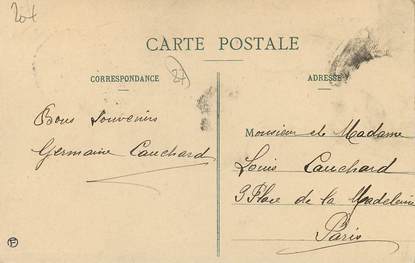 204
CARTE POSTALE
CORRESPONDANCE
24
ADRESSE
Bons Souvenirs
Germaine Cauchard
Monsieur et Madame
Louis Cauchard
9 Place de la Madeleine
Paris